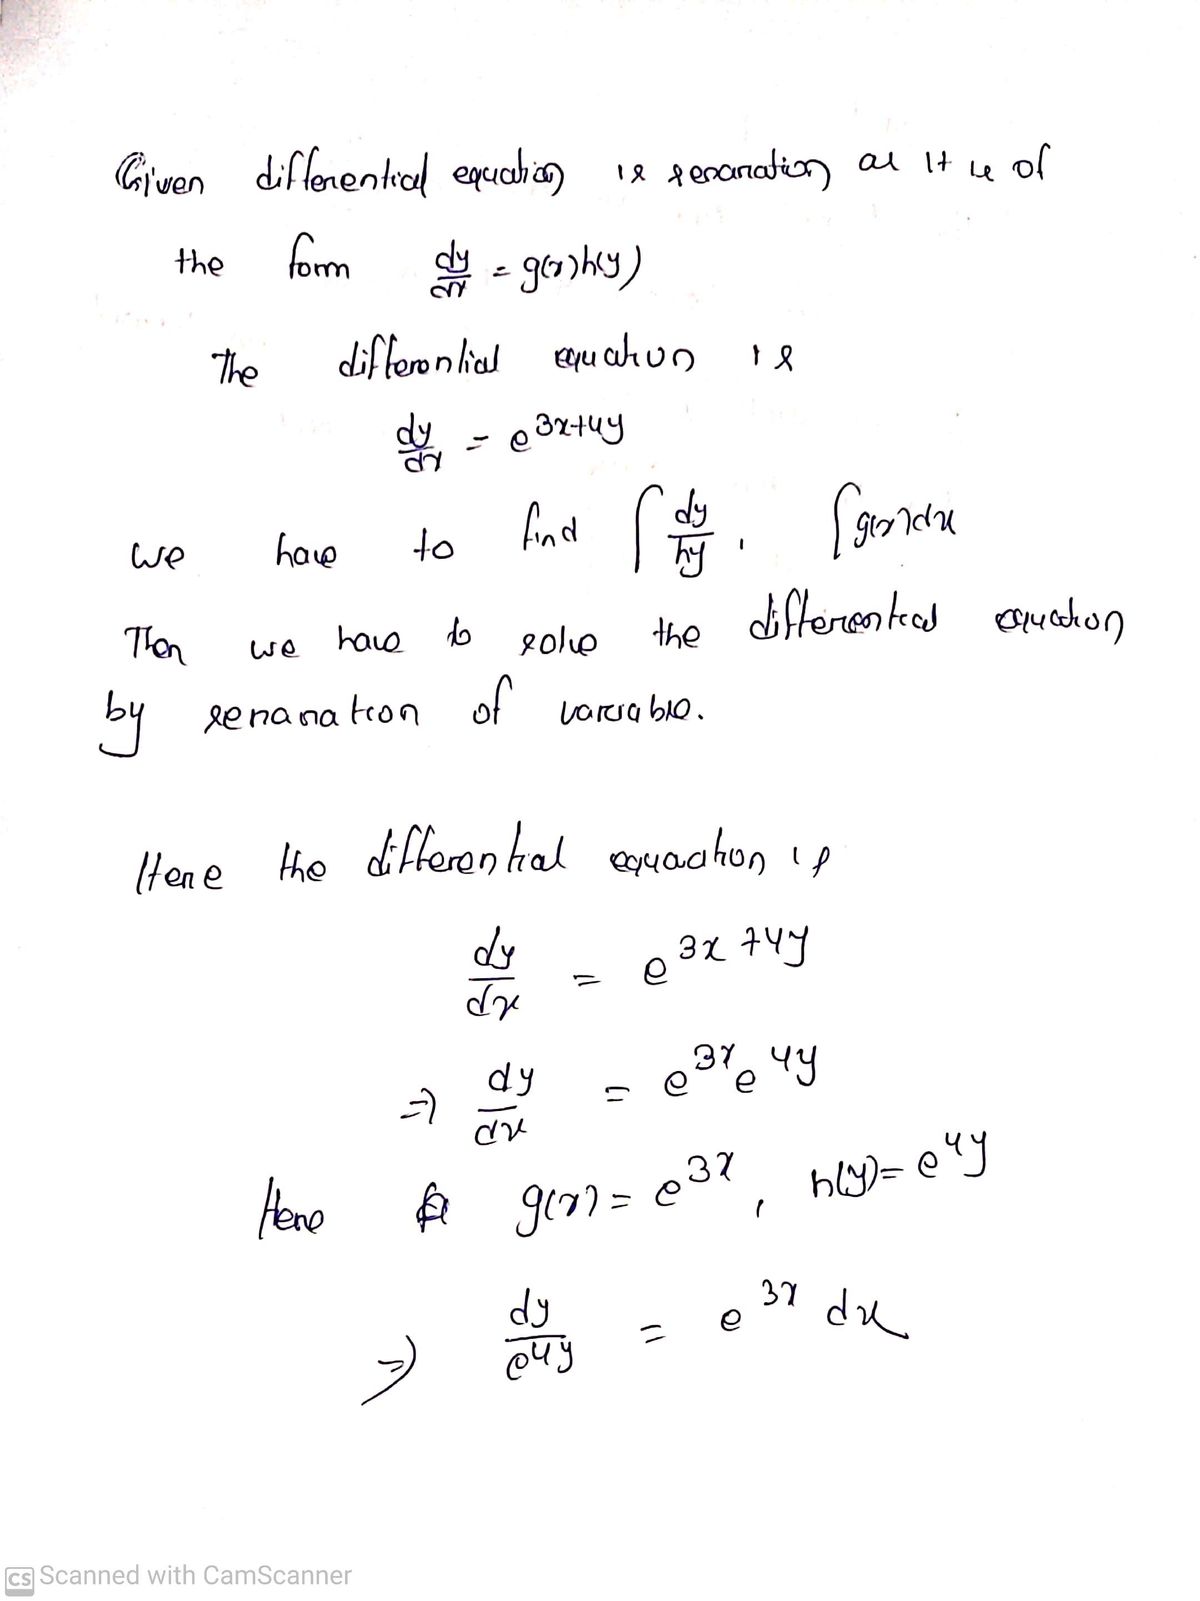 Given differential equation is separation as it is of
the form dy/dx = g(x)h(y)
The differential equation is
dy/dx = e^{3x+4y}
we have to find ∫ dy/hy , ∫ g(x)dx
Then we have to solve the differential equation
by separation of variable.
Here the differential equation is
dy/dx = e^{3x+4y}
⇒ dy/dx = e^{3x} e^{4y}
Here g(x) = e^{3x} , h(y) = e^{4y}
⇒ dy/e^{4y} = e^{3x} dx
CS Scanned with CamScanner